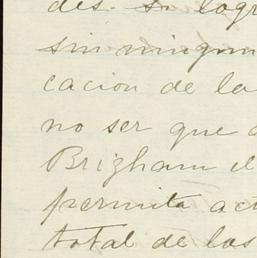 des. so logr
sin ningun
cacion de la
no ser que
Brigham el
permita act
total de los